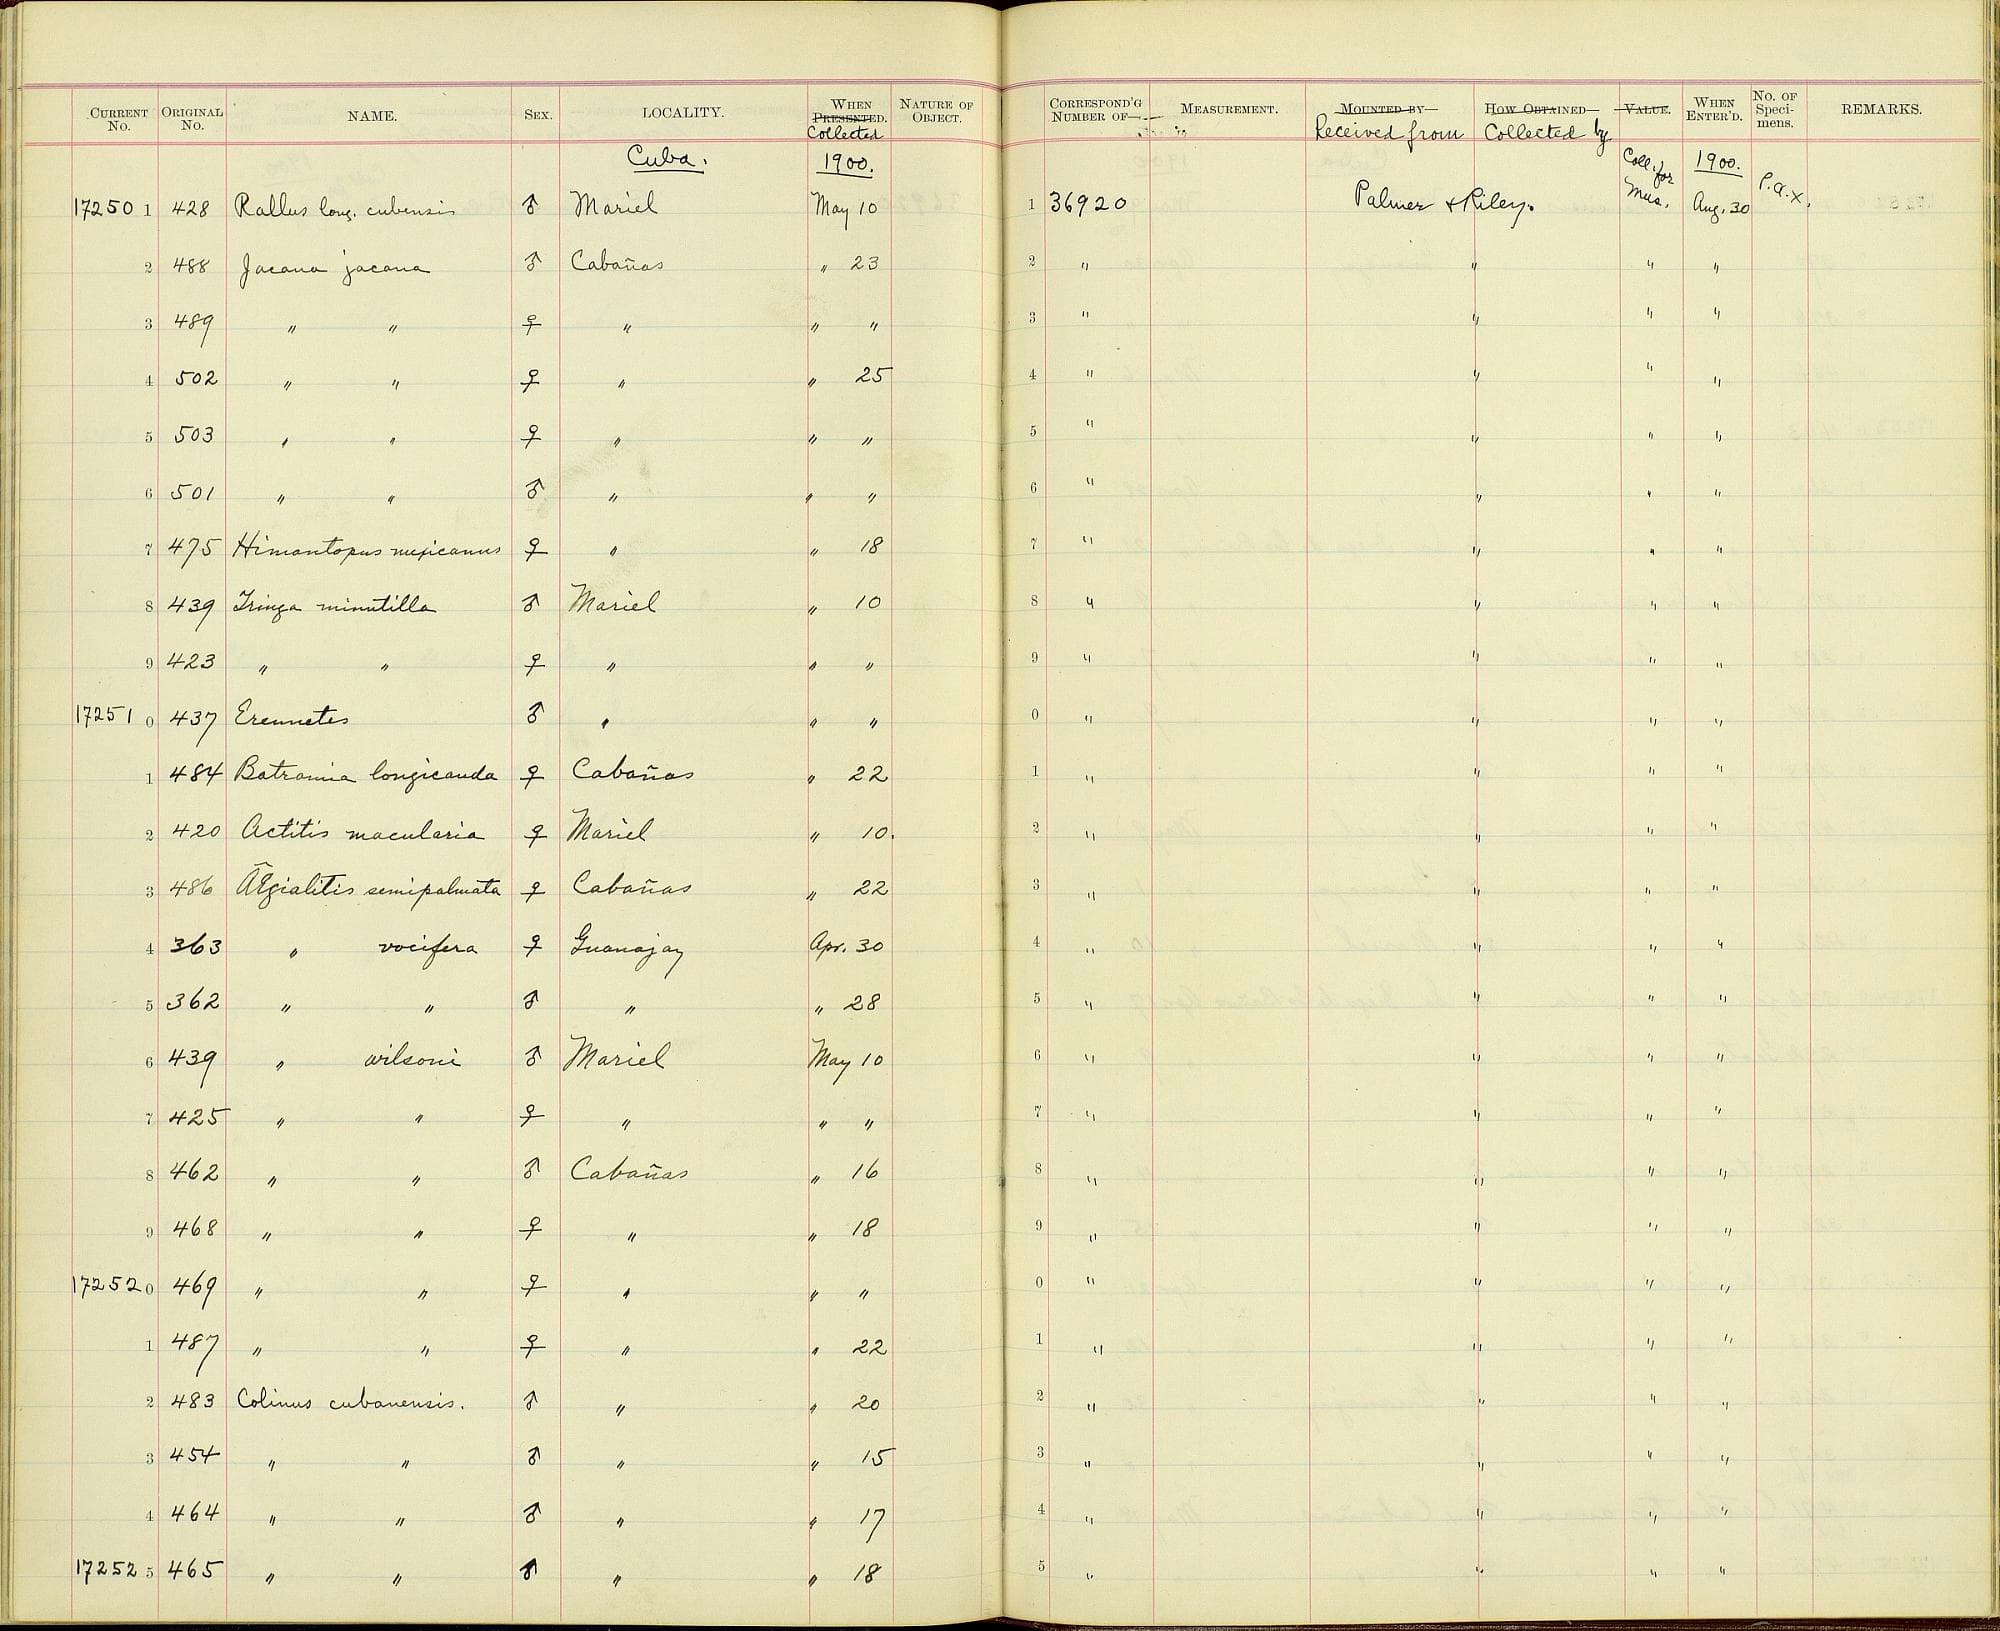 CURRENT No. ORIGINAL No. NAME. SEX. LOCALITY. WHEN PRESENTED. Collected NATURE OF OBJECT. CORRESPOND'G NUMBER OF— MEASUREMENT. MOUNTED BY— Received from HOW OBTAINED— Collected by VALUE. WHEN ENTER'D. No. OF Specimens. REMARKS.
Cuba. 1900. Coll. for Mus. 1900.
17250 1 428 Rallus long. cubensis ♂ Mariel May 10 1 36920 Palmer & Riley. Aug. 30 P.a.x.
2 488 Jacana jacana ♂ Cabañas " 23 2 " " " "
3 489 " " ♀ " " " 3 " " " "
4 502 " " ♀ " " 25 4 " " " "
5 503 " " ♀ " " " 5 " " " "
6 501 " " ♂ " " " 6 " " " "
7 475 Himantopus mexicanus ♀ " " 18 7 " " " "
8 439 Tringa minutilla ♂ Mariel " 10 8 " " " "
9 423 " " ♀ " " " 9 " " " "
17251 0 437 Ereunetes ♂ " " " 0 " " " "
1 484 Batramia longicauda ♀ Cabañas " 22 1 " " " "
2 420 Actitis macularia ♀ Mariel " 10. 2 " " " "
3 486 Ægialitis semipalmata ♀ Cabañas " 22 3 " " " "
4 363 " vocifera ♀ Guanajay Apr. 30 4 " " " "
5 362 " " ♂ " " 28 5 " " " "
6 439 " wilsoni ♂ Mariel May 10 6 " " " "
7 425 " " ♀ " " " 7 " " " "
8 462 " " ♂ Cabañas " 16 8 " " " "
9 468 " " ♀ " " 18 9 " " " "
17252 0 469 " " ♀ " " " 0 " " " "
1 487 " " ♀ " " 22 1 " " " "
2 483 Colinus cubanensis. ♂ " " 20 2 " " " "
3 454 " " ♂ " " 15 3 " " " "
4 464 " " ♂ " " 17 4 " " " "
17252 5 465 " " ♂ " " 18 5 " " " "